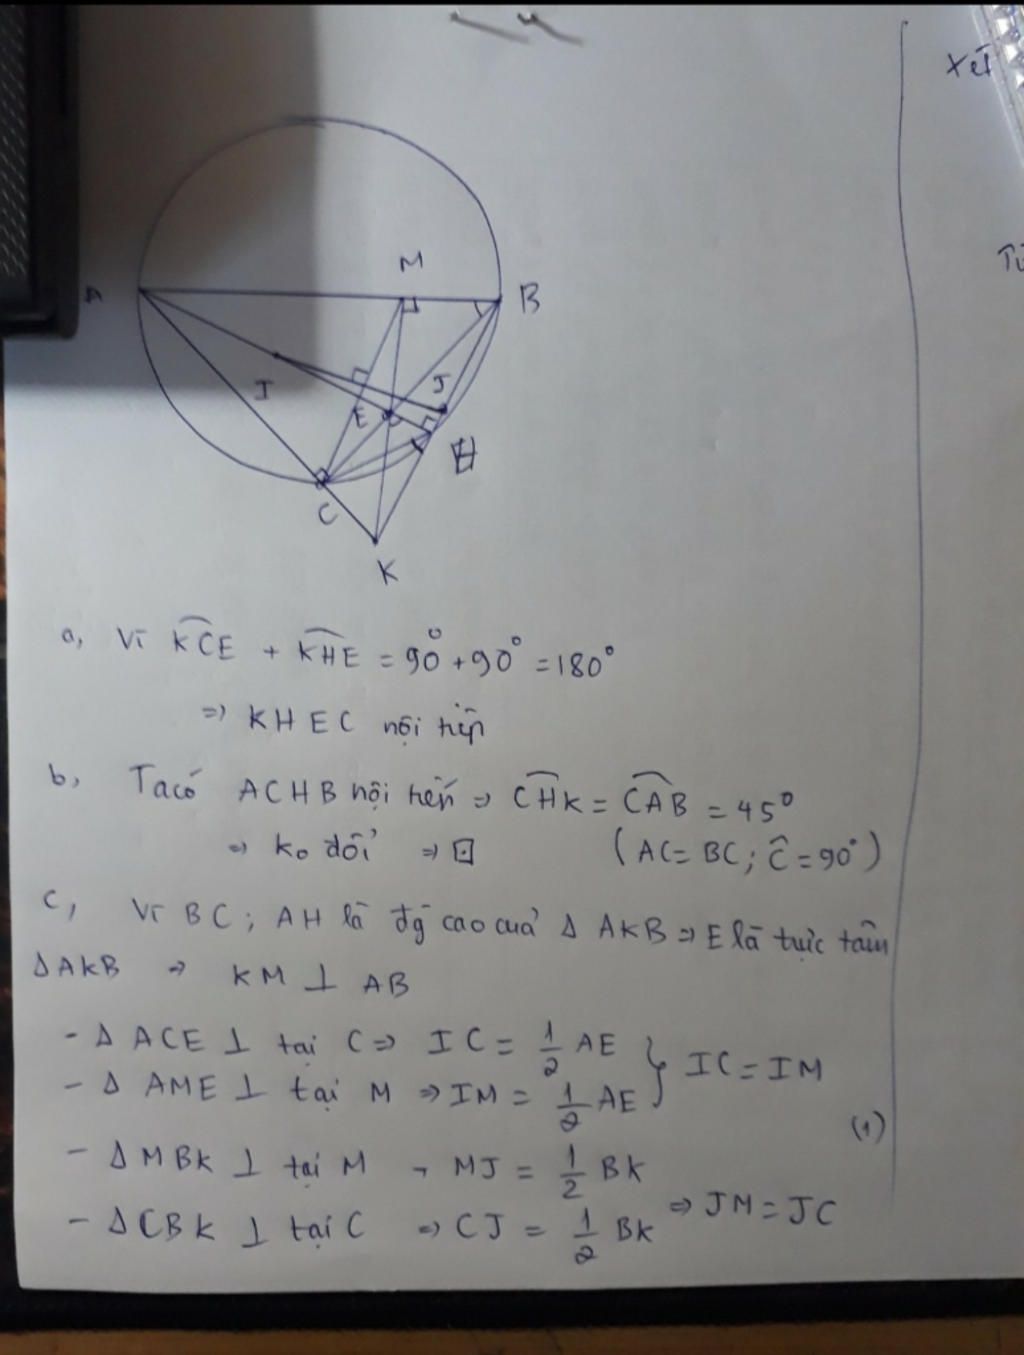 Xét
Từ
M
A
B
I
J
E
H
C
K
a, Vì KCE + KHE = 90° + 90° = 180°
=> KHEC nội tiếp
b, Ta có ACHB nội tiếp => CHK = CAB = 45°
=> ko đổi => (AC = BC; Ĉ = 90°)
c, Vì BC; AH là đg cao của Δ AKB => E là trực tâm
Δ AKB => KM ⊥ AB
- Δ ACE ⊥ tại C => IC = 1/2 AE
- Δ AME ⊥ tại M => IM = 1/2 AE } IC = IM
(1)
- Δ MBK ⊥ tại M → MJ = 1/2 BK
- Δ CBK ⊥ tại C => CJ = 1/2 BK => JM = JC